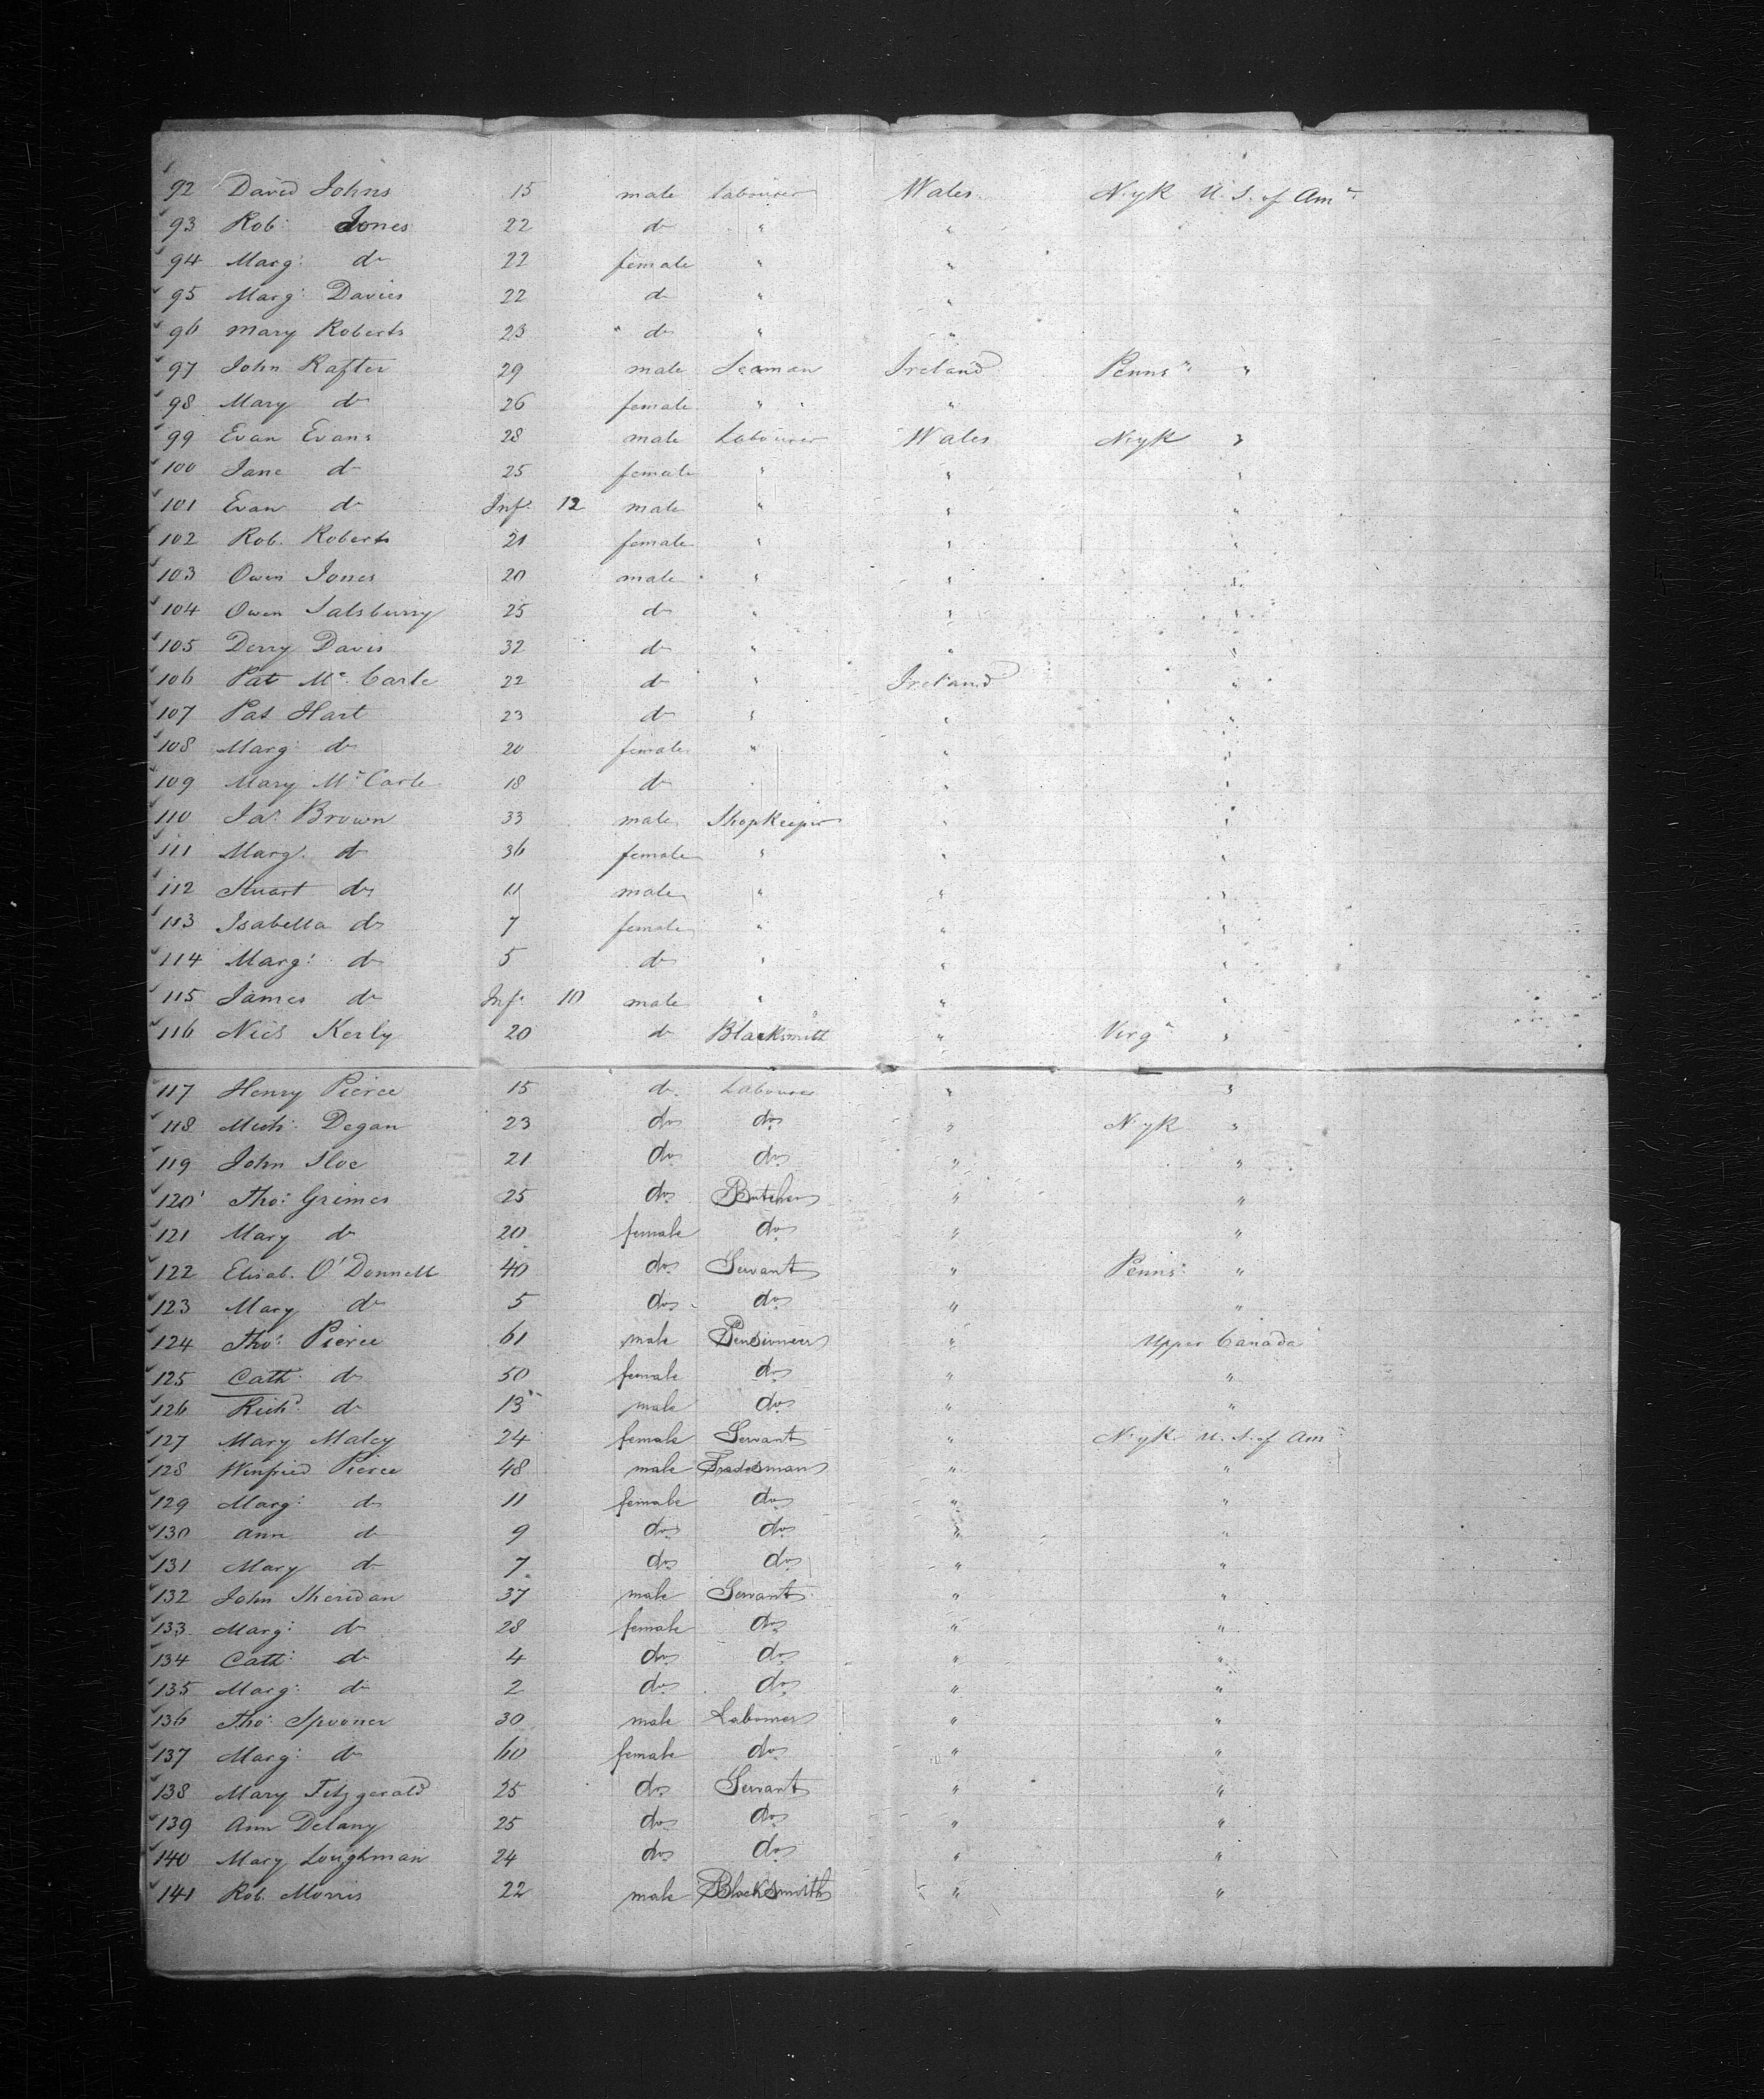 92 David Johns 15 male labourer Wales N.yk U.S. of Amᵃ
93 Rob: Jones 22 do " "
94 Marg: do 22 female " "
95 Marg: Davies 22 do " "
96 Mary Roberts 23 " do " "
97 John Rafter 29 male Seaman Ireland Pennsᵃ "
98 Mary do 26 female " "
99 Evan Evans 28 male Labourer Wales N.yk "
100 Jane do 25 female " " "
101 Evan do Inf. 12 male " " "
102 Rob. Roberts 21 female " " "
103 Owen Jones 20 male " " "
104 Owen Salsburry 25 do " " "
105 Derry Davis 32 do " " "
106 Pat Mc. Carle 22 do " Ireland "
107 Pat Hart 23 do " " "
108 Marg: do 20 female " " "
109 Mary Mc Carle 18 do " " "
110 Jas. Brown 33 male Shopkeeper " "
111 Marg. do 36 female " " "
112 Stuart do 11 male " " "
113 Isabella do 7 female " " "
114 Marg: do 5 do " " "
115 James do Inf. 10 male " " "
116 Nics Kerly 20 do Blacksmith " Virgᵃ "
117 Henry Pierce 15 do. Labourer " "
118 Mich: Degan 23 do do " N.yk "
119 John Sloe 21 do do " "
120 Tho: Grimes 25 do Butcher " "
121 Mary do 20 female do " "
122 Elisab. O'Donnell 40 do Servant " Penns: "
123 Mary do 5 do do " "
124 Tho: Pierce 61 male Pensioneer " Upper Canada
125 Cath: do 50 female do " "
126 Richd. do 13 male do " "
127 Mary Maley 24 female Servant " N.yk U.S. of Am
128 Winfried Pierce 48 male Tradesman " "
129 Marg: do 11 female do " "
130 Ann do 9 do do " "
131 Mary do 7 do do " "
132 John Sheridan 37 male Servant " "
133 Marg: do 28 female do " "
134 Cath: do 4 do do " "
135 Marg: do 2 do do " "
136 Tho: Spooner 30 male Labourer " "
137 Marg: do 60 female do " "
138 Mary Fitzgerald 25 do Servant " "
139 Ann Delany 25 do do " "
140 Mary Loughman 24 do do " "
141 Rob. Morris 22 male BlackSmith " "